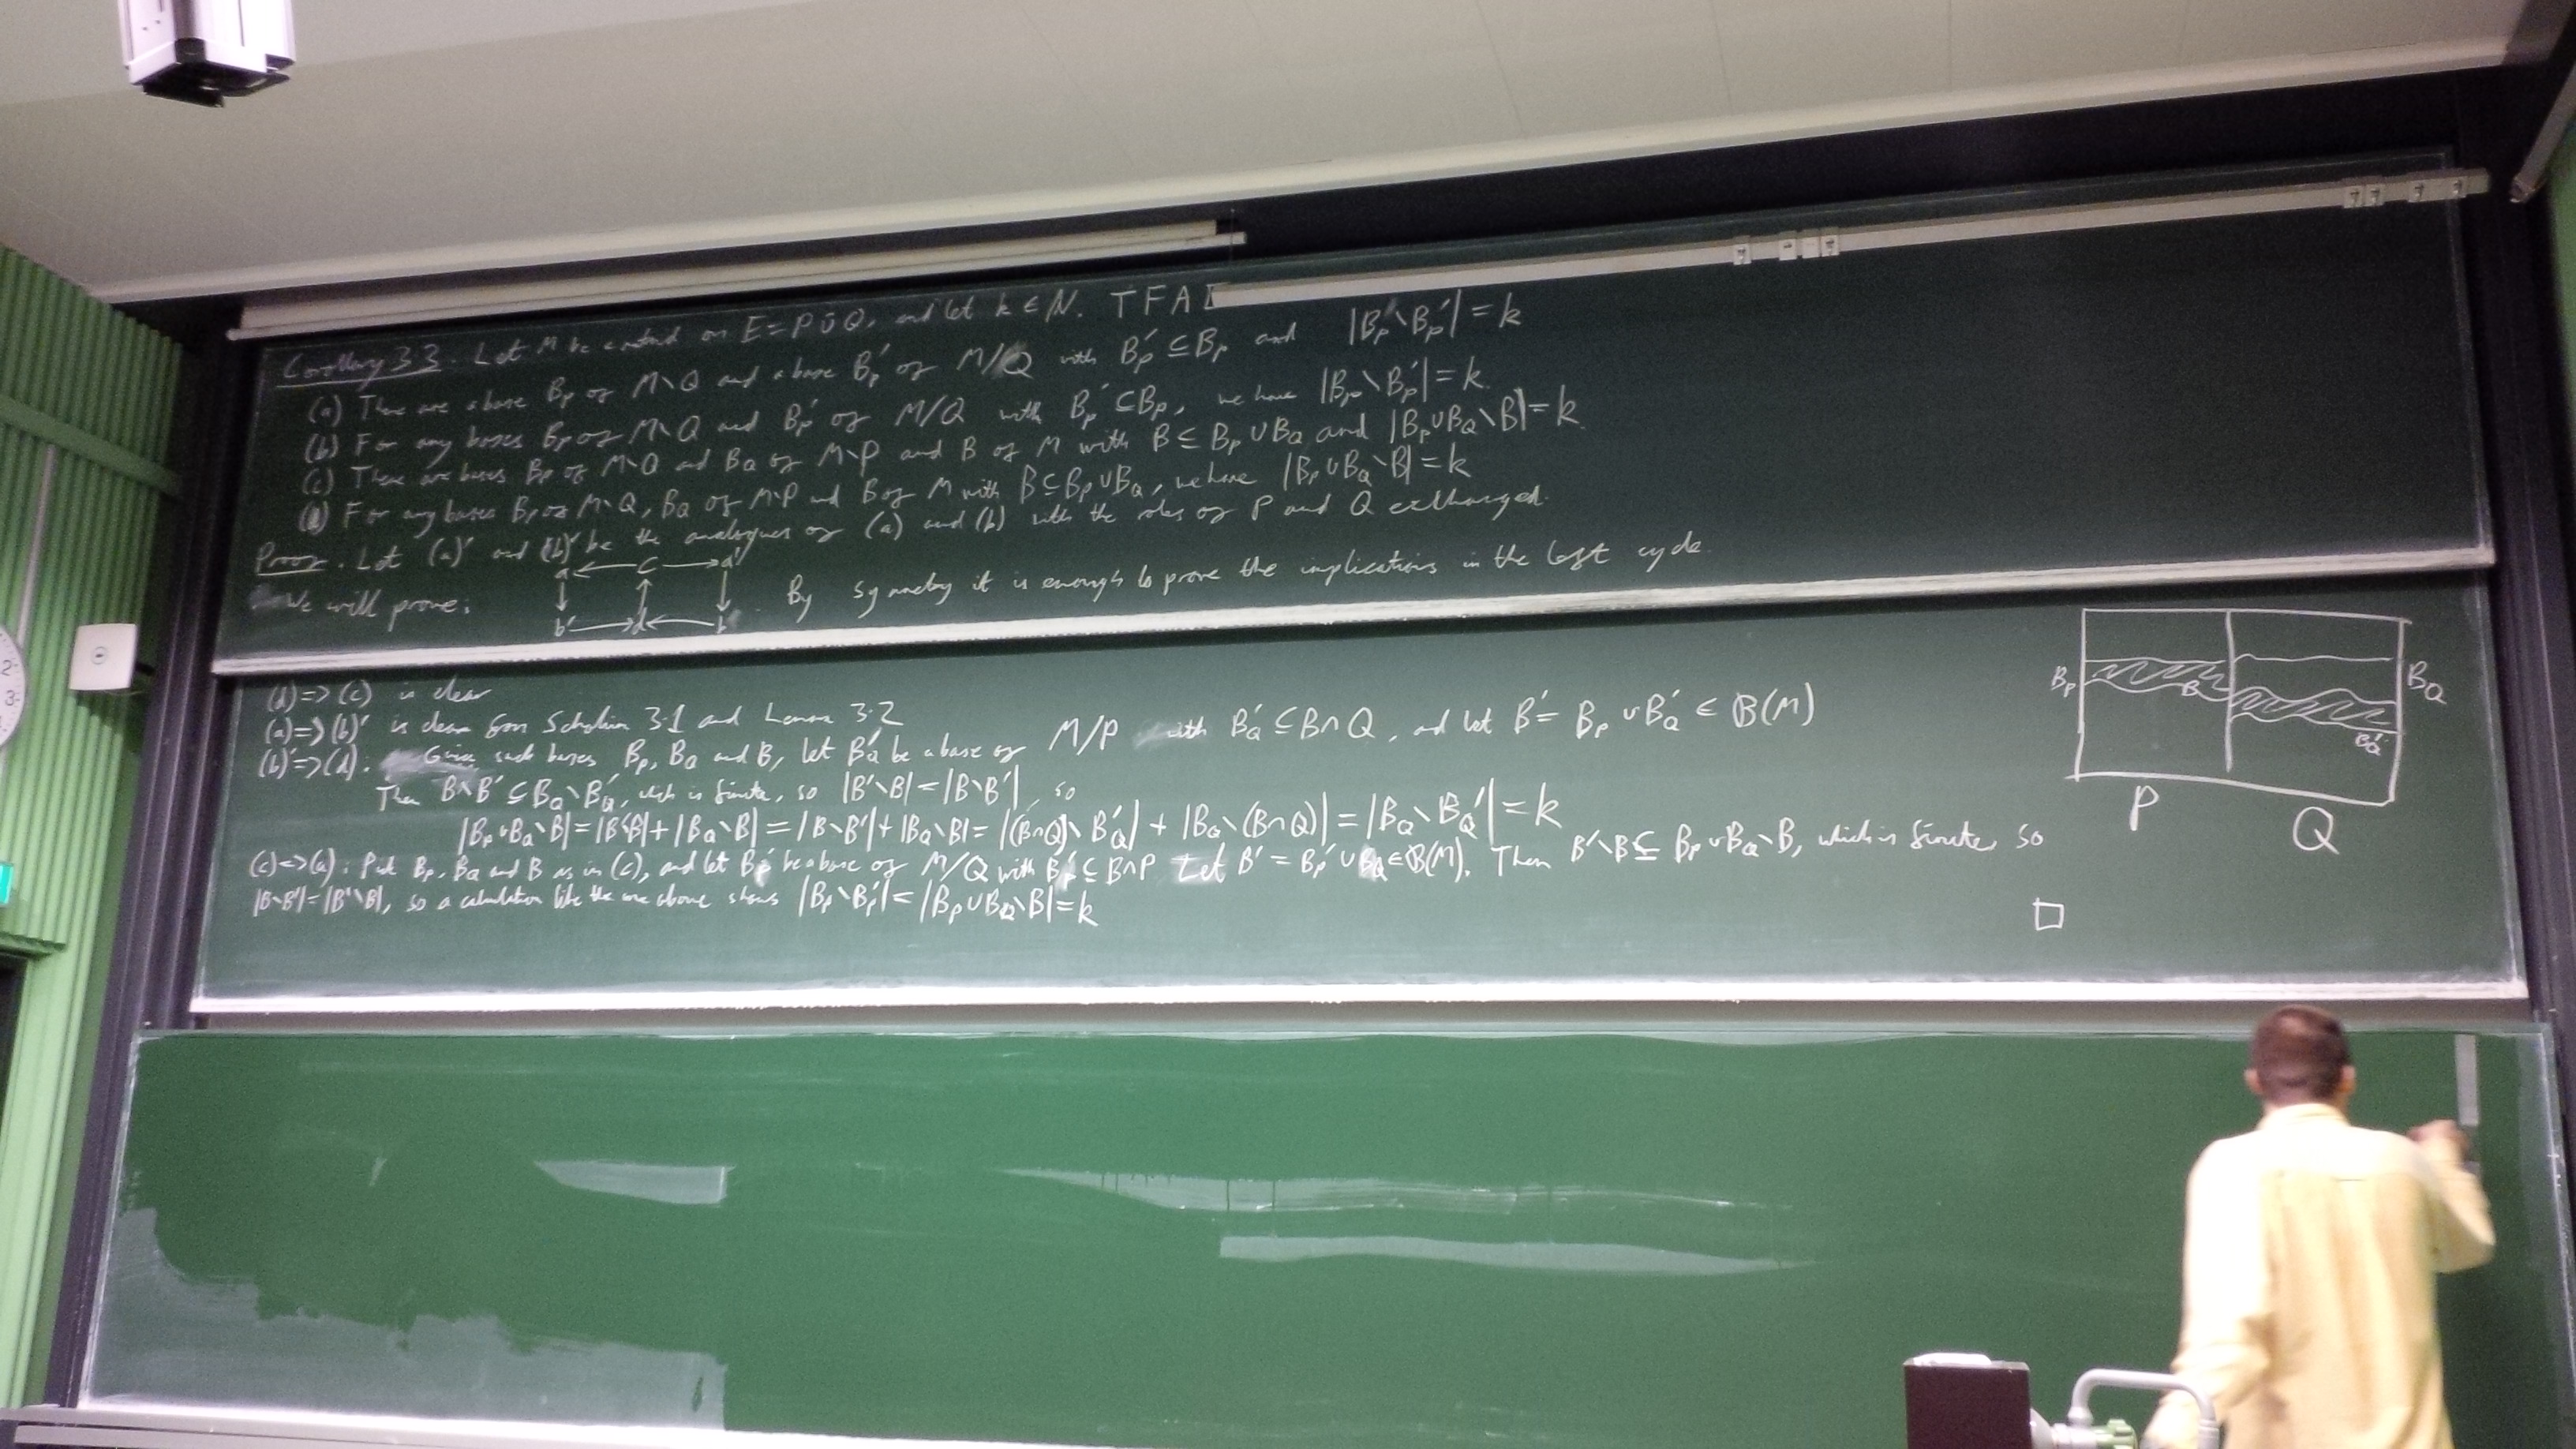 Corollary 3.3. Let M be a matroid on E = P ∪̇ Q, and let k ∈ N. TFAE
(a) There are a base B_P of M\Q and a base B_P' of M/Q with B_P' ⊆ B_P and |B_P \ B_P'| = k
(b) For any bases B_P of M\Q and B_P' of M/Q with B_P' ⊆ B_P, we have |B_P \ B_P'| = k.
(c) There are bases B_P of M\Q and B_Q of M\P and B of M with B ⊆ B_P ∪ B_Q and |B_P ∪ B_Q \ B| = k.
(d) For any bases B_P of M\Q, B_Q of M\P and B of M with B ⊆ B_P ∪ B_Q, we have |B_P ∪ B_Q \ B| = k
Proof. Let (a)' and (b)' be the analogues of (a) and (b) with the roles of P and Q exchanged.
We will prove:
a ← c → a'
↓ ↑ ↓
b' → d ← b
By symmetry it is enough to prove the implications in the left cycle.
(d) => (c) is clear
(a) => (b)' is clear from Scholium 3.1 and Lemma 3.2
(b)' => (d). Given such bases B_P, B_Q and B, let B_Q' be a base of M/P with B_Q' ⊆ B∩Q, and let B' = B_P ∪ B_Q' ∈ B(M)
Then B\B' ⊆ B_Q \ B_Q', which is finite, so |B'\B| = |B\B'|, so
|B_P ∪ B_Q \ B| = |B'\B| + |B_Q \ B| = |B\B'| + |B_Q \ B| = |(B∩Q) \ B_Q'| + |B_Q \ (B∩Q)| = |B_Q \ B_Q'| = k
(c) => (a): Pick B_P, B_Q and B as in (c), and let B_P' be a base of M/Q with B_P' ⊆ B∩P Let B' = B_P' ∪ B_Q ∈ B(M). Then B'\B ⊆ B_P ∪ B_Q \ B, which is finite, so
|B\B'| = |B'\B|, so a calculation like the one above shows |B_P \ B_P'| = |B_P ∪ B_Q \ B| = k
□
B_P
B
B_Q
B_Q'
P
Q